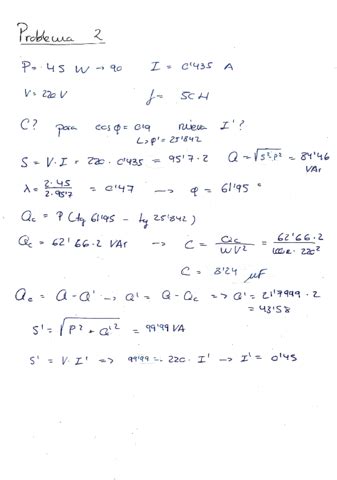 Problema 2
P = 45 W → 90 I = 0'435 A
V = 220 V f = 50 H
C? para cos φ = 0'9 nueva I'?
↳ φ' = 25'842
S = V·I = 220·0'435 = 95'7·2 Q = √S²-P² = 84'46
VAr
λ = 2·45 / 2·95'7 = 0'47 → φ = 61'95 º
Qc = P (tg 61'95 - tg 25'842)
Qc = 62'66·2 VAr → C = Qc / WV² = 62'66·2 / 220²
C = 8'24 μF
Qc = Q - Q' → Q' = Q - Qc => Q' = 21'7999·2
= 43'58
S' = √P² + Q'² = 99'99 VA
S' = V·I' => 99'99 = 220·I' → I' = 0'45